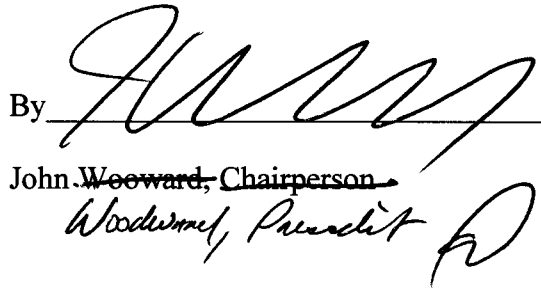 By
John Wooward, Chairperson
Woodward, President